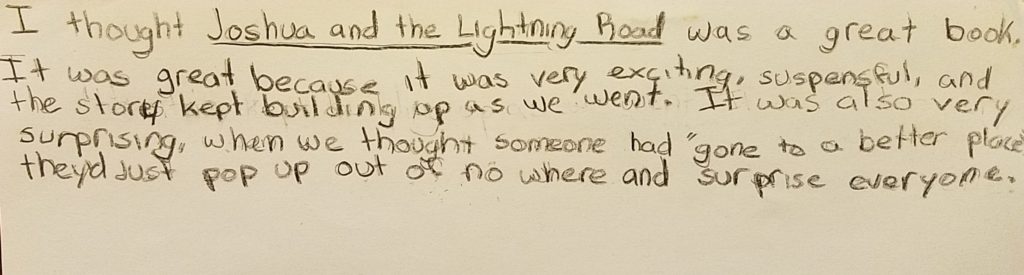 I thought Joshua and the Lightning Road was a great book.
It was great because it was very exciting, suspensful, and
the story kept building up as we went. It was also very
surprising, when we thought someone had "gone to a better place
theyd just pop up out of no where and surprise everyone.